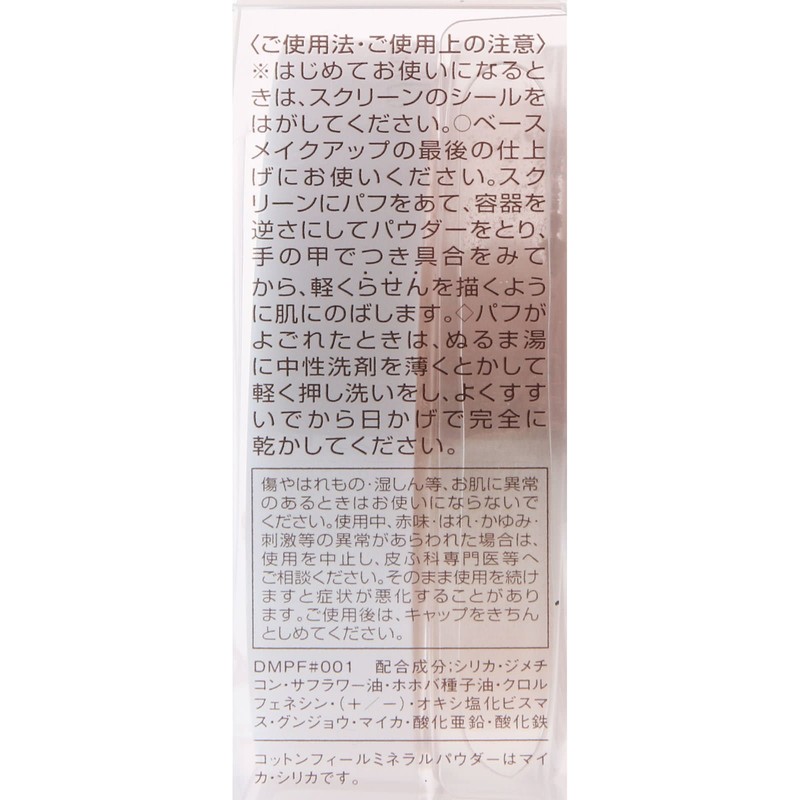 〈ご使用法・ご使用上の注意〉
※はじめてお使いになると
きは、スクリーンのシールを
はがしてください。○ベース
メイクアップの最後の仕上
げにお使いください。スク
リーンにパフをあて、容器を
逆さにしてパウダーをとり、
手の甲でつき具合をみて
から、軽くらせんを描くよう
に肌にのばします。◇パフが
よごれたときは、ぬるま湯
に中性洗剤を薄くとかして
軽く押し洗いをし、よくすす
いでから日かげで完全に
乾かしてください。
傷やはれもの・湿しん等、お肌に異常
のあるときはお使いにならないで
ください。使用中、赤味・はれ・かゆみ・
刺激等の異常があらわれた場合は、
使用を中止し、皮ふ科専門医等へ
ご相談ください。そのまま使用を続け
ますと症状が悪化することがあり
ます。ご使用後は、キャップをきちん
としめてください。
DMPF#001 配合成分;シリカ・ジメチ
コン・サフラワー油・ホホバ種子油・クロル
フェネシン・(+/−)・オキシ塩化ビスマ
ス・グンジョウ・マイカ・酸化亜鉛・酸化鉄
コットンフィールミネラルパウダーはマイ
カ・シリカです。